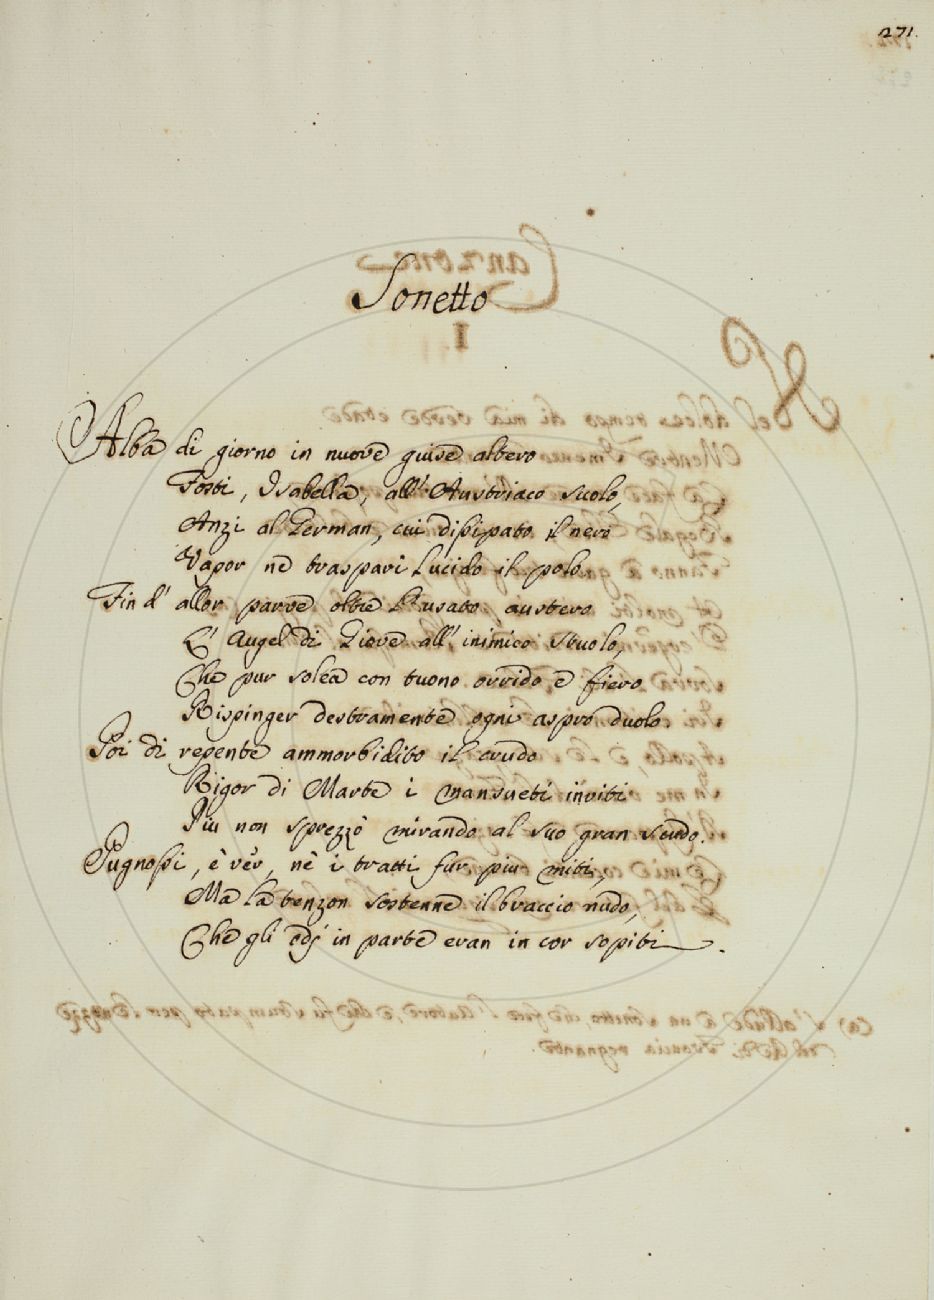 271.
Sonetto
I
Alba di giorno in nuove guise altero
Fosti, Isabella, all' Austriaco suolo,
Anzi al German, cui dissipato il nero
Vapor ne traspari lucido il polo.
Fin d' allor parve oltre l' usato austero
L' Augel di Giove all' inimico stuolo,
Che pur solea con tuono orrido e fiero
Rispinger destramente ogni aspro duolo.
Poi di repente ammorbidito il crudo
Rigor di Marte i mansueti inviti
Più non sprezzò mirando al suo gran scudo.
Pugnossi, è ver, nè i tratti fur piu miti,
Ma la tenzon sostenne il braccio nudo,
Che gli odj in parte eran in cor sopiti.